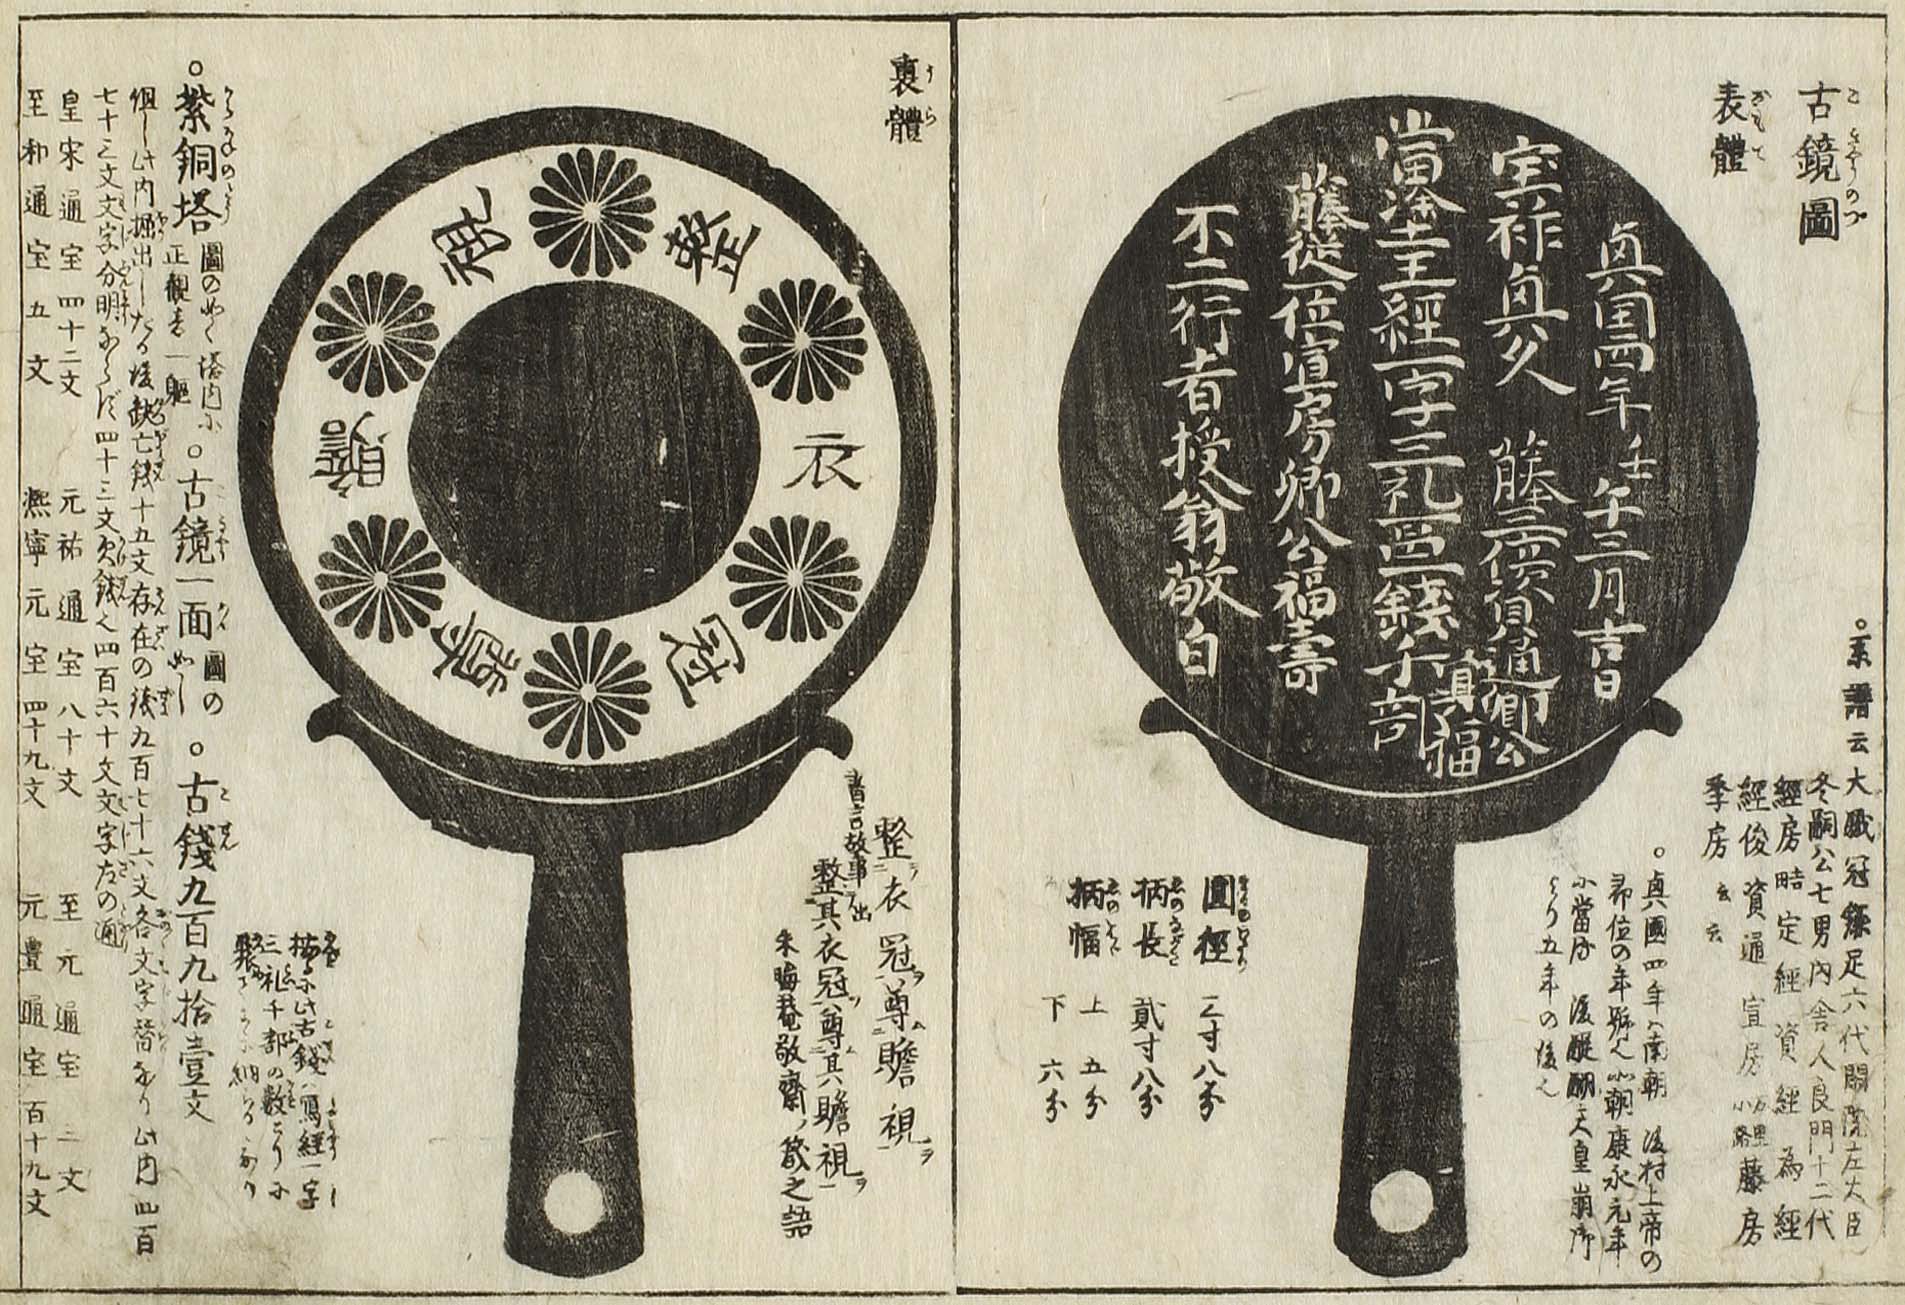 古鏡圖
表體
眞国四年壬午三月吉日
宝祚眞久 藤三位資通卿公
眞福
當塗王經一字三礼一邑一錢千部
藤從一位宣房卿公福壽
不二行者授翁敬白
○系譜云大職冠鎌足六代閑院左大臣
冬嗣公七男内舎人良門十二代
經房 定經 資經 為經
經俊 資通 宣房 万里小路 藤房
季房 云云
○眞國四年ハ南朝 後村上帝の
即位の年號也北朝康永元年
に當る 後醍醐天皇崩御
より五年の後也
圓徑 三寸八分
柄長 貳寸八分
柄幅 上五分
下六分
裏體
整衣冠尊瞻視
整衣冠尊瞻視
書言故事ニ出
整其衣冠尊其瞻視
朱晦菴敬齋ノ箴之語
○紫銅塔 圖の如く塔内に
正觀音一軀
○古鏡一面 圖の
如し
○古錢九百九拾壹文
此古錢ハ寫經一字
三礼千部の数より
納るなり
掘出したる後缺亡錢十五文存在の錢九百七十六文各文字替なり此内四百
七十三文文字分明ならず四十三文欠錢也四百六十文文字左の通
皇宋通宝四十二文 元祐通宝八十文 至元通宝三文
至和通宝五文 熙寧元宝四十九文 元豊通宝百十九文